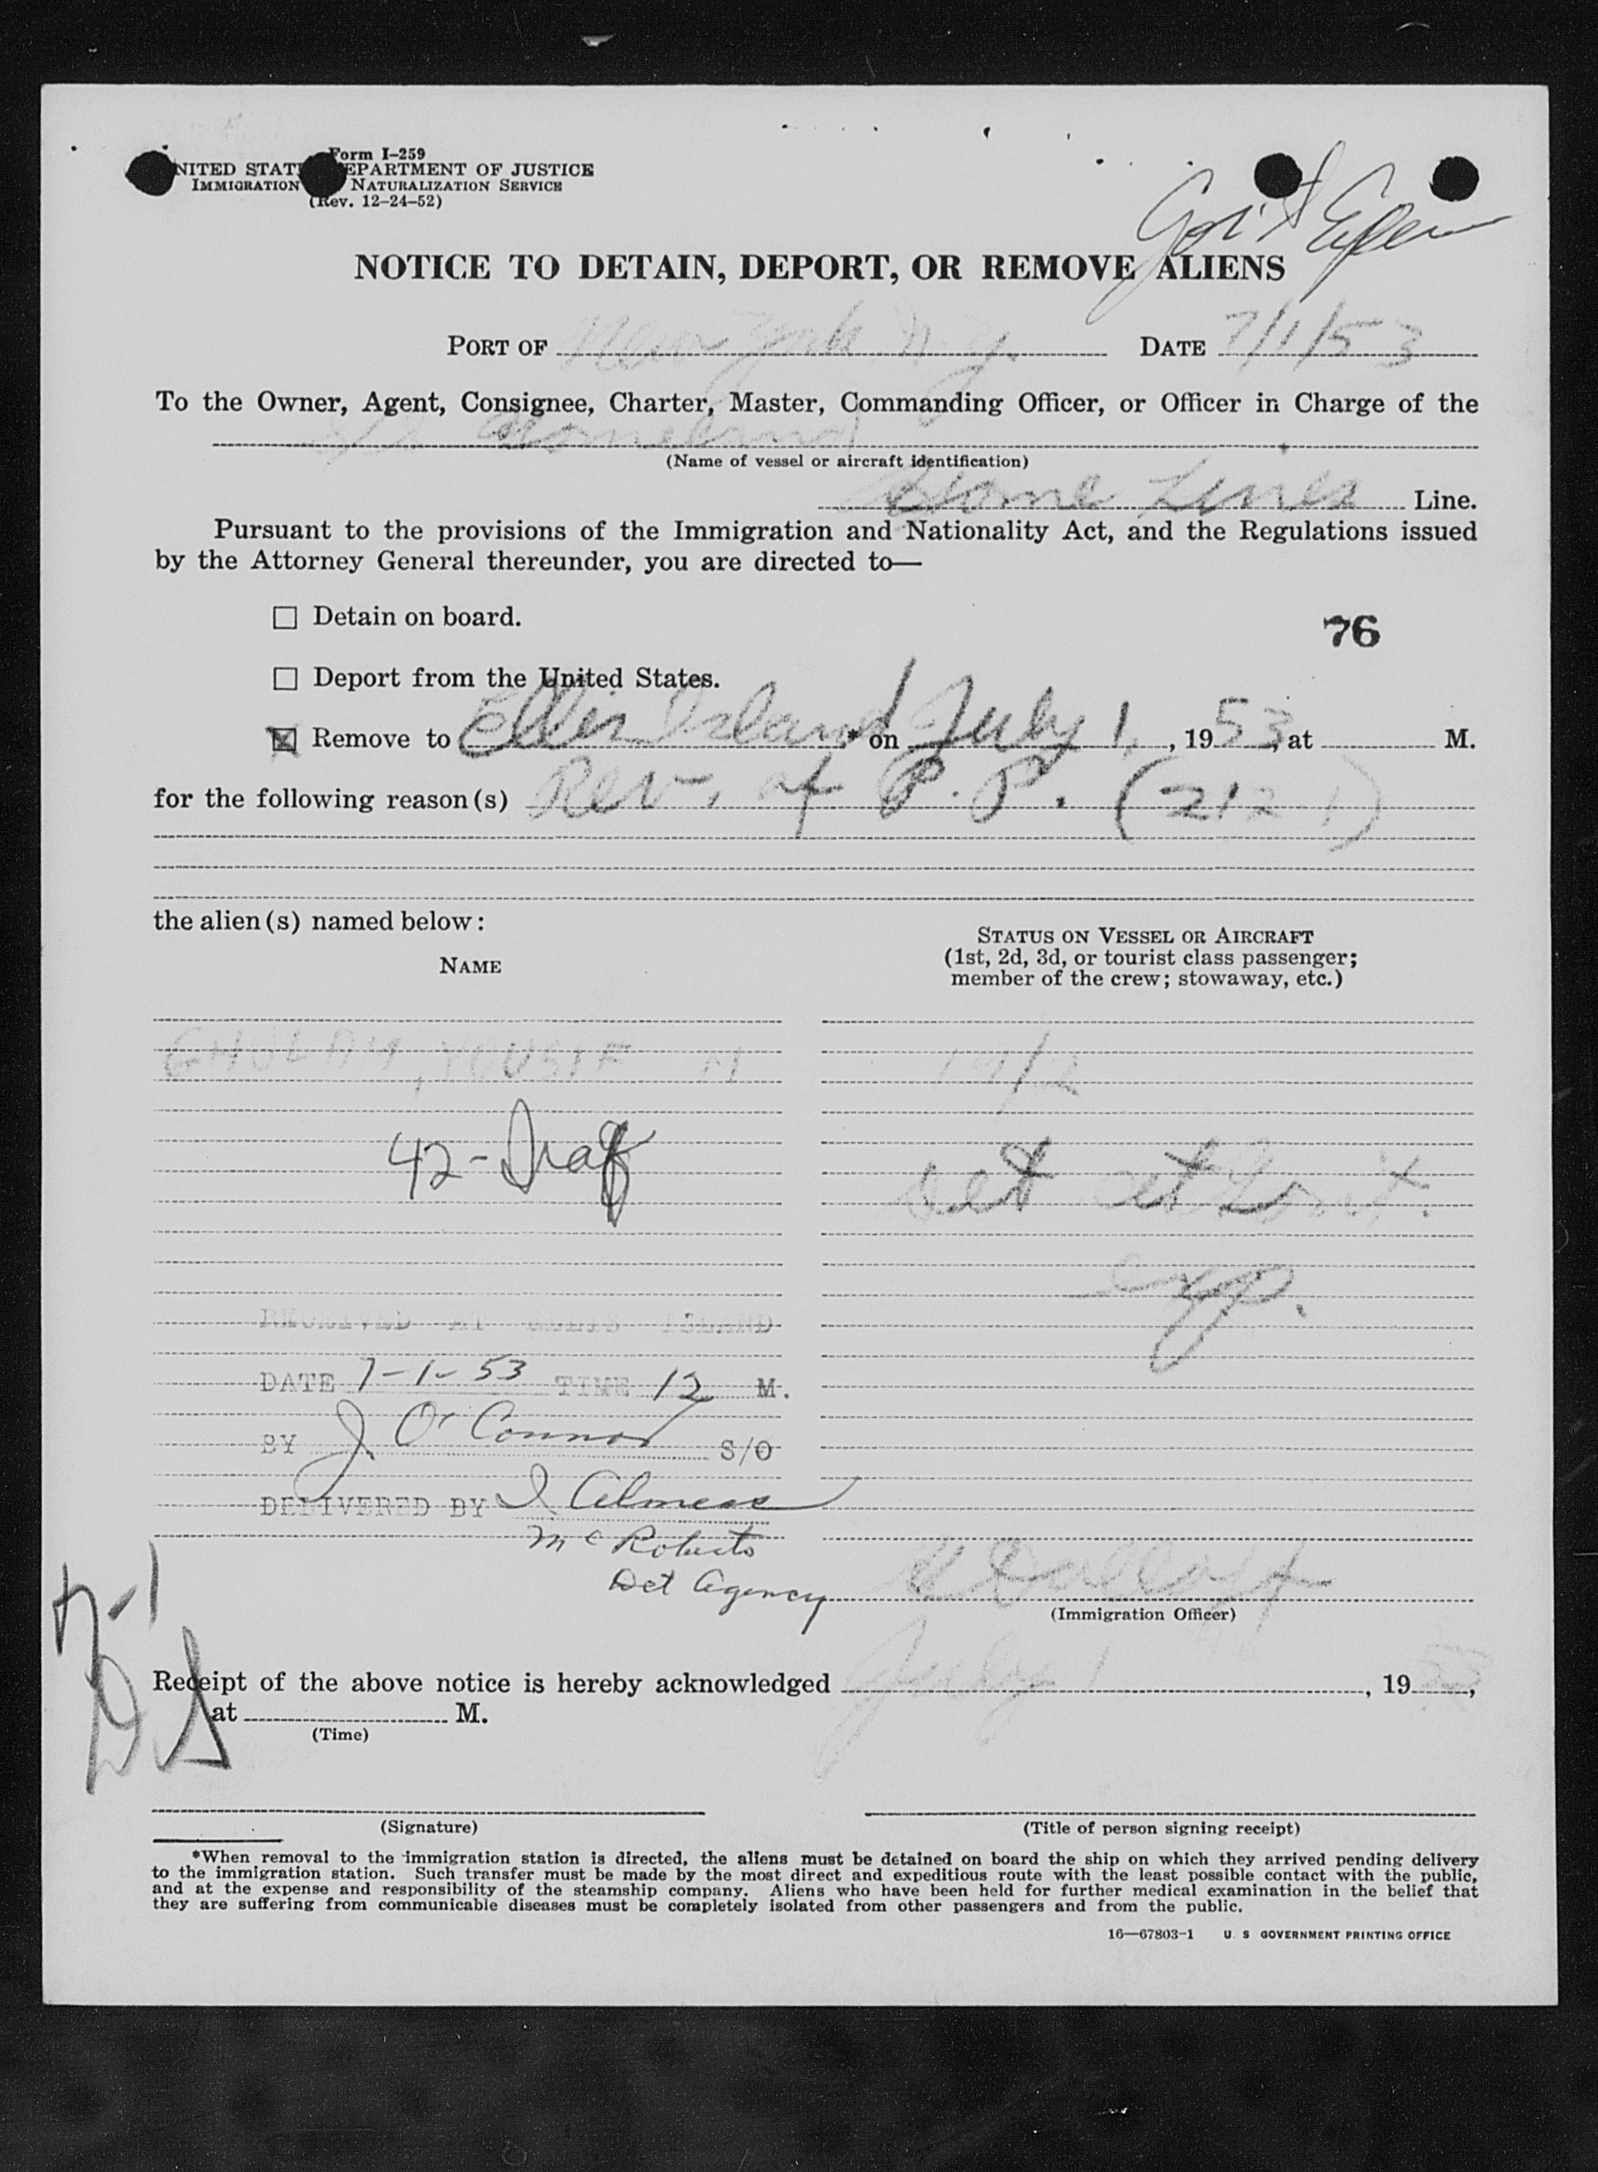 Form I-259
UNITED STATES DEPARTMENT OF JUSTICE
IMMIGRATION NATURALIZATION SERVICE
(Rev. 12-24-52)
Gov't Expen
NOTICE TO DETAIN, DEPORT, OR REMOVE ALIENS
PORT OF New York N.Y. DATE 7/1/53
To the Owner, Agent, Consignee, Charter, Master, Commanding Officer, or Officer in Charge of the
Homeland
(Name of vessel or aircraft identification)
Home Lines Line.
Pursuant to the provisions of the Immigration and Nationality Act, and the Regulations issued
by the Attorney General thereunder, you are directed to—
☐ Detain on board.
76
☐ Deport from the United States.
☒ Remove to Ellis Island * on July 1, , 19 53, at M.
for the following reason(s) Rev. of P.P. (212 1)
the alien(s) named below:
NAME
STATUS ON VESSEL OR AIRCRAFT
(1st, 2d, 3d, or tourist class passenger;
member of the crew; stowaway, etc.)
GHULAM, YOUSIF M
42 - Iraq
det at Gov't.
exp.
RECEIVED AT ELLIS ISLAND
DATE 7-1-53 TIME 12 M.
BY J. O'Connor S/O
DELIVERED BY
McRoberts
Det Agency
(Immigration Officer)
D-1
DS
Receipt of the above notice is hereby acknowledged July 1, 19 53,
at M.
(Time)
(Signature)
(Title of person signing receipt)
*When removal to the immigration station is directed, the aliens must be detained on board the ship on which they arrived pending delivery
to the immigration station. Such transfer must be made by the most direct and expeditious route with the least possible contact with the public,
and at the expense and responsibility of the steamship company. Aliens who have been held for further medical examination in the belief that
they are suffering from communicable diseases must be completely isolated from other passengers and from the public.
16—67803-1 U S GOVERNMENT PRINTING OFFICE